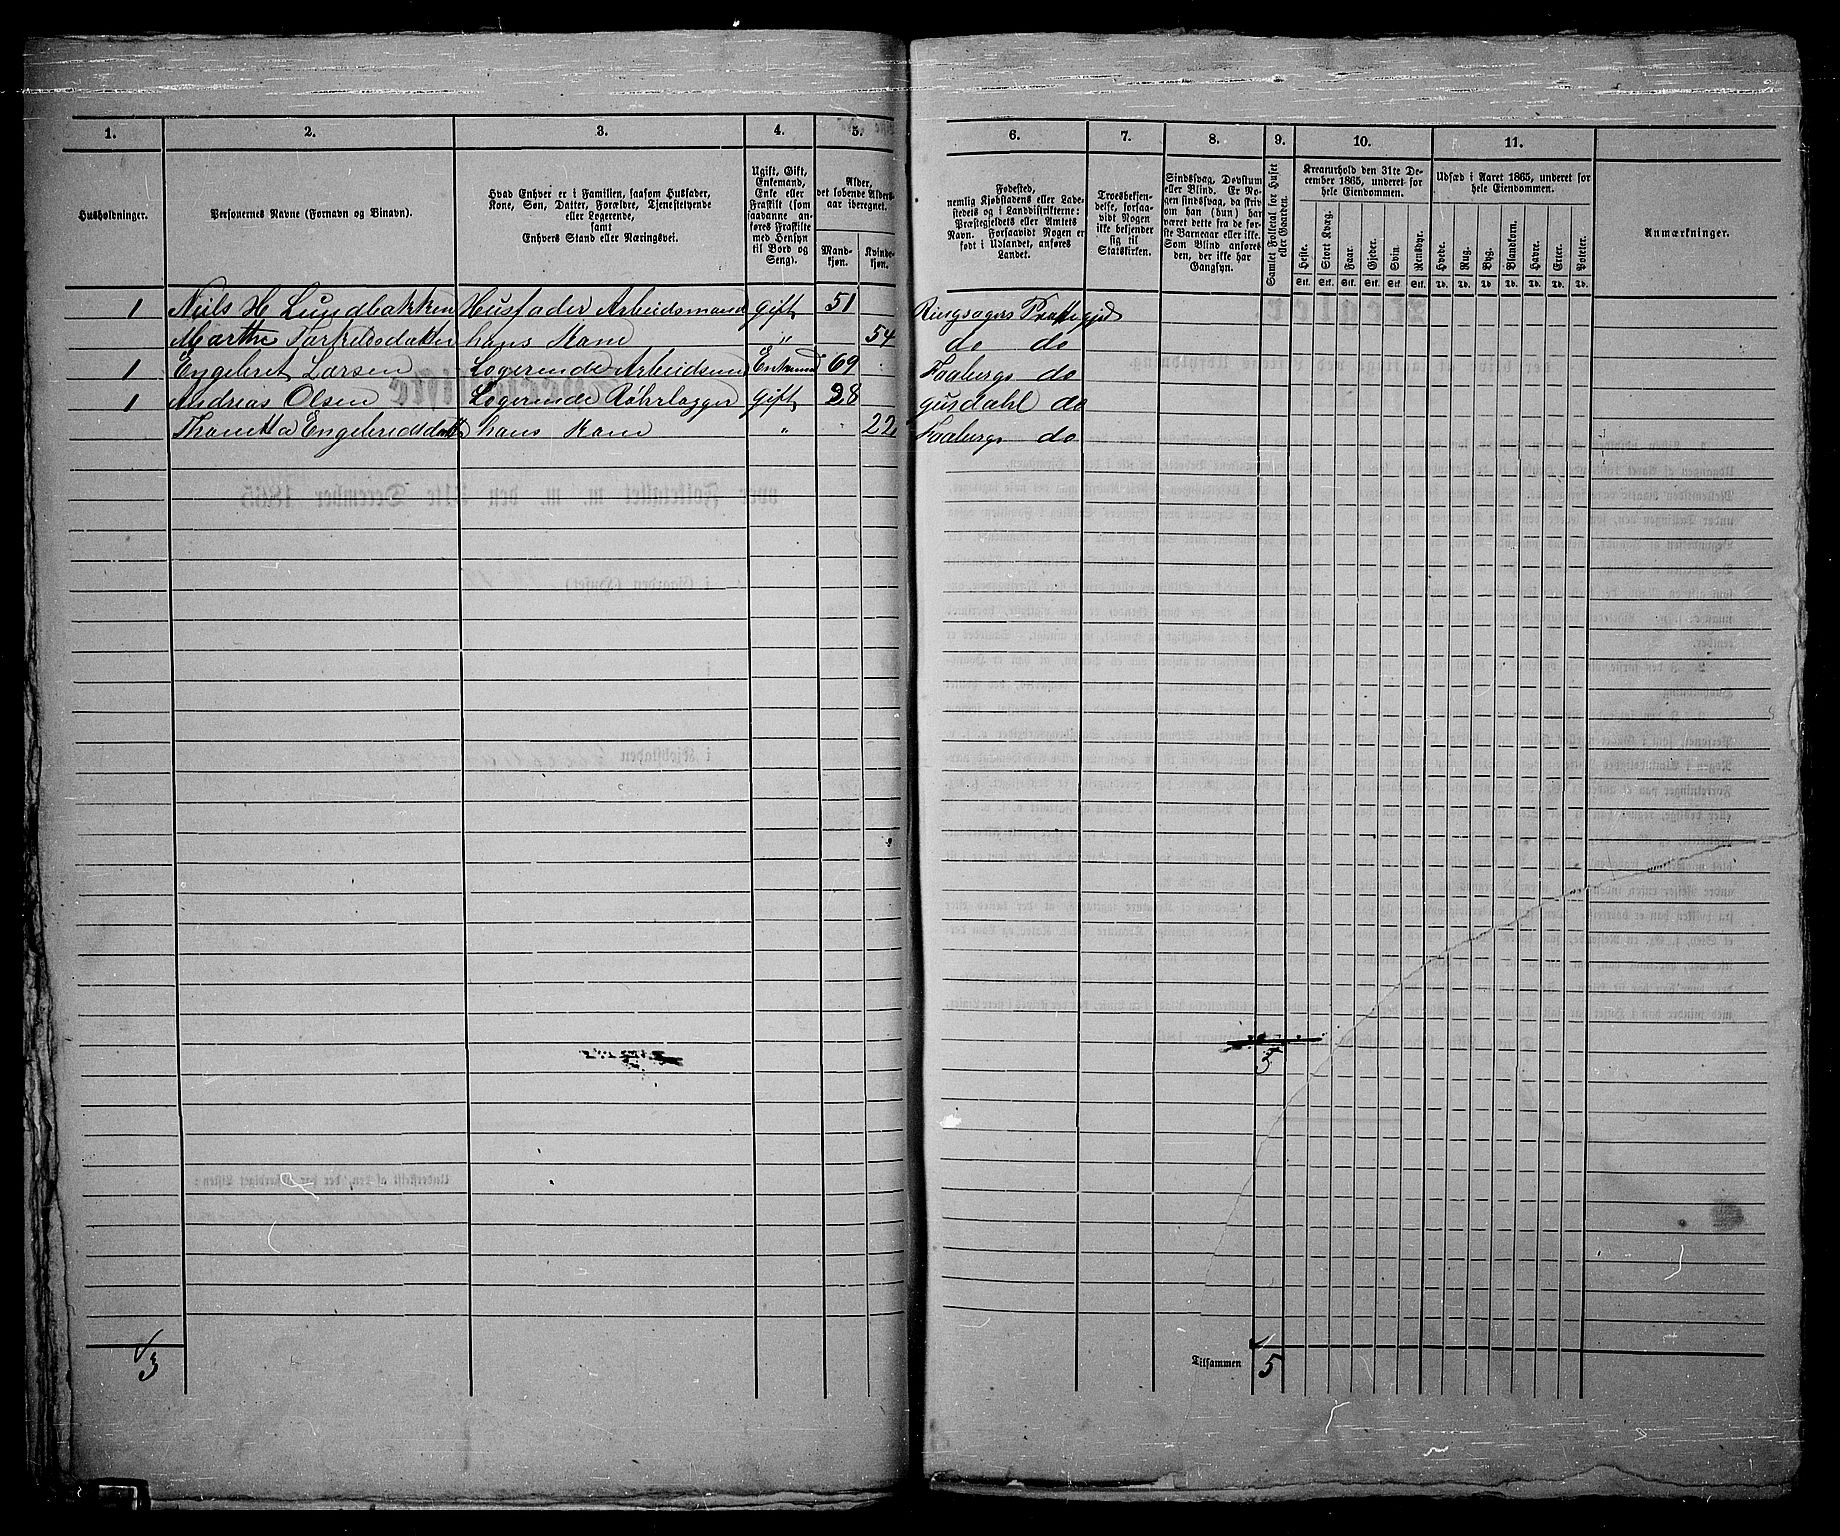 1. 2. 3. 4. 5. 6. 7. 8. 9. 10. 11.
Husholdninger.
Personernes Navne (Fornavn og Binavn).
Hvad Enhver er i Familien, saasom Husfader,
Kone, Søn, Datter, Forældre, Tjenstetyende
eller Logerende,
samt
Enhvers Stand eller Næringsvei.
Ugift, Gift,
Enkemand,
Enke eller
Fraskilt (som
saadanne an-
føres Fraskilte
med Hensyn
til Bord og
Seng).
Alder,
det løbende Alders-
aar iberegnet.
Mand-
kjøn.
Kvinde-
kjøn.
Fødested,
nemlig Kjøbstadens eller Lade-
stedets og i Landdistrikterne:
Præstegjeldets eller Amtets
Navn. Forsaavidt Nogen er
født i Udlandet, anføres
Landet.
Troesbekjen-
delse, forsaa-
vidt Nogen
ikke bekjender
sig til
Statskirken.
Sindssvag, Døvstum
eller Blind. Er No-
gen sindssvag, da skriv
om han (hun) har
været dette fra de før-
ste Barneaar eller ikke.
Som Blind anføres
den, der ikke har
Gangsyn.
Samlet Folketal for Huset
eller Gaarden.
Kreaturhold den 31te De-
cember 1865, underet for
hele Eiendommen.
Heste. Stort Kvæg. Faar. Gjeder. Svin. Rensdyr.
Stk. Stk. Stk. Stk. Stk. Stk.
Udsæd i Aaret 1865, underet for
hele Eiendommen.
Hvede. Rug. Byg. Blandkorn. Havre. Erter. Poteter.
Td. Td. Td. Td. Td. Td. Td.
Anmærkninger.
1 Niels H Lundbakken Husfader Arbeidsmand gift 51 Ringsagers
Marthe hans Kone " 54 do do
1 Engebret Larsen Logerende 69 Faabergs do
1 Andreas Olsen Logerende gift 28 do
hans Kone " 22 Faabergs do
5
3
Tilsammen 5